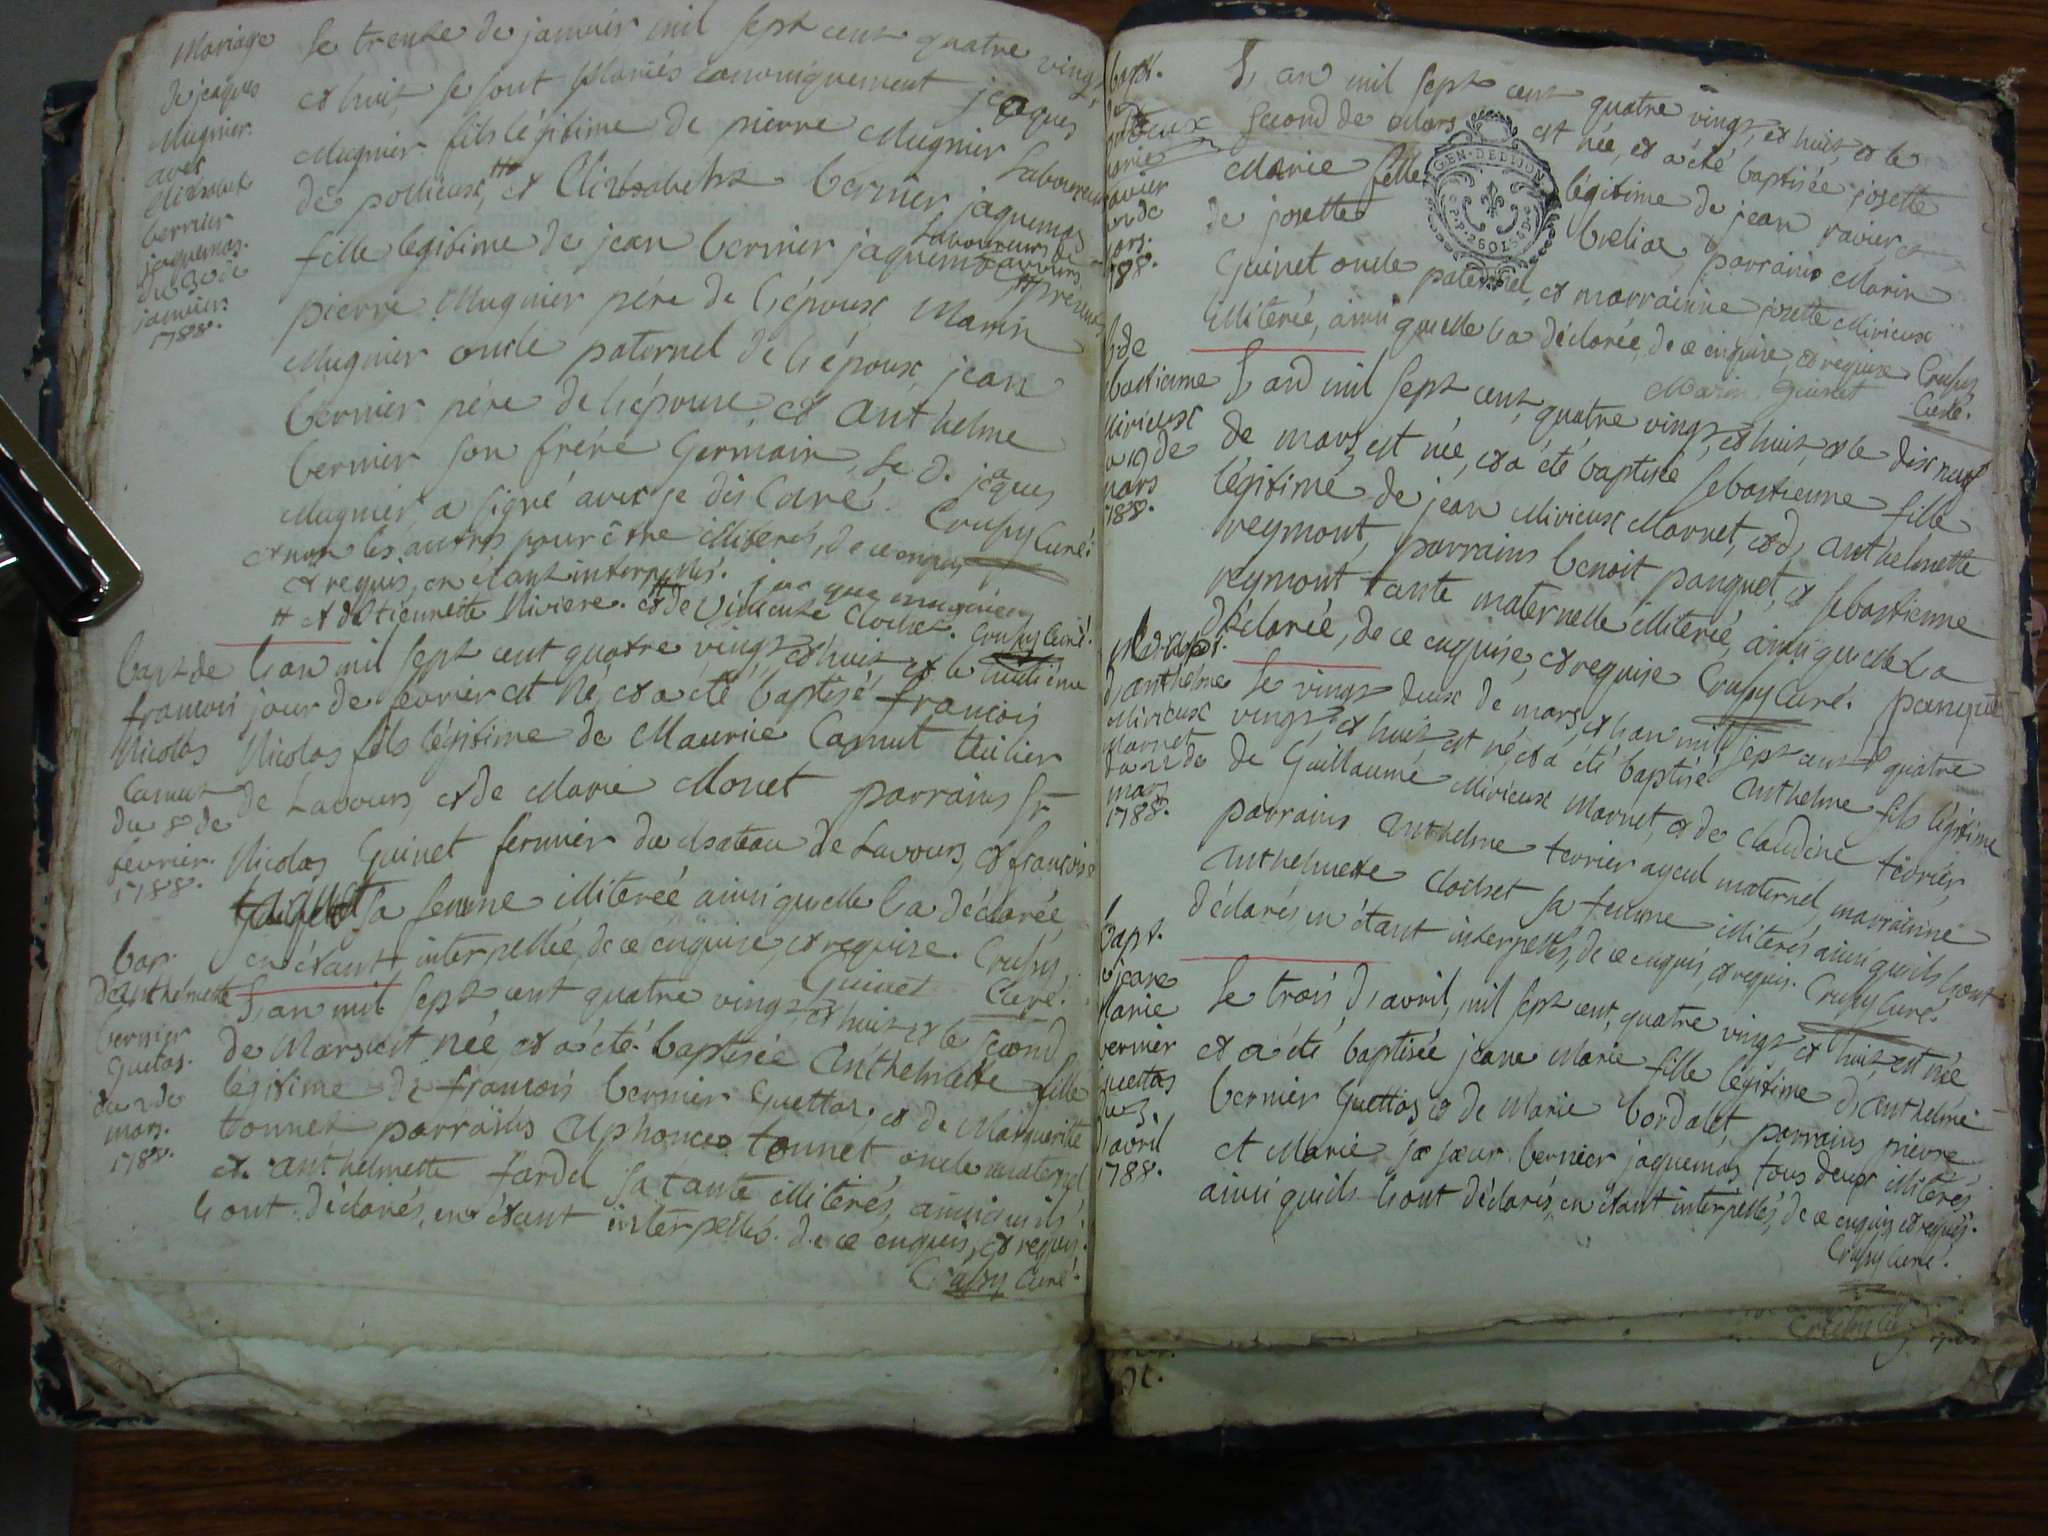 Mariage
de jaques
Mugnier
avec
bernier
jaquemas.
du 30 de
janvier.
1788.
Le trente de janvier mil sept cent quatre vingt
et huit, se sont Mariés canoniquement jaques
Mugnier fils légitime de pierre Mugnier Laboureur
de pollieux, et Elizabeth bernier jaquemas
fille légitime de jean bernier jaquemas Laboureurs de
Lavours presents
pierre Mugnier père de L'époux, Marin
Mugnier oncle paternel de L'époux, jean
bernier père de L'épouse, et anthelme
bernier son frère Germain, Le d. jaques
Mugnier a signé avec je dis Curé. Crussy Curé.
et non les autres pour être illiterés, de ce enquis
et requis, en étant interpellés. jacque mugnier
# et d'Etiennette Riviere. ## et de Vincente Clochet. Crussy Curé.
bapt. de
francois
Nicolas
Camut
du 8 de
fevrier.
1788.
L'an mil sept cent quatre vingt et huit, et le huitieme
jour de fevrier est Né, et a été baptisé francois
Nicolas fils légitime de Maurice Camut tuilier
de Lavours, et de Marie Monet parrains Sr.
Nicolas Guinet fermier du chateau de Lavours, et francoise
sa femme illiterée ainsi quelle L'a déclarée,
en étant interpellée, de ce enquise, et requise. Crussy
Guinet Curé.
bap.
d'anthelmette
bernier
Guetas.
du 2 de
mars.
1788.
L'an mil sept cent quatre vingt, et huit et le second
de Mars est née, et a été baptisée Anthelmette fille
légitime de francois bernier Guettas, et de Marguerite
tonnet parrains Alphonce tonnet oncle maternel
et anthelmette fardel sa tante illiterés, ainsi quils
L'ont déclarés, en étant interpellés, de ce enquis, et requis.
Crussy Curé.
bapt.
marie
ravier
mars.
1788.
L'an mil sept cent quatre vingt, et huit, et le
second de Mars est née, et a été baptisée josette
Marie fille légitime de jean ravier, et
de josette brelias, parrains Marin
Guinet oncle paternel, et marrainne josette Mirieux
illiterée, ainsi quelle L'a déclarée, de ce enquise, et requise. Crussy
Marin Guinet Curé.
GEN. DE DIJON
b. de
bastienne
Mirieux
19 de
mars
1788.
L'an mil sept cent, quatre vingt, et huit, et le dix neuf
de mars, est née, et a été baptisée Sebastienne fille
légitime de jean Mirieux Marnet, et d'anthelmette
reymont, parrains benoit panquet, et Sebastienne
reymont tante maternelle illiterée, ainsi quelle L'a
déclarée, de ce enquise, et requise Crussy Curé. panquet
bapt.
d'anthelme
Mirieux
Marnet
du 22 de
mars
1788.
Le vingt deux de mars, et L'an mil sept cent quatre
vingt, et huit est né, et a été baptisé Anthelme fils légitime
de Guillaume Mirieux Marnet, et de Claudine tevrier,
parrains Anthelme tevrier ayeul maternel, marrainne
Anthelmette Clochet sa femme illiterés ainsi quils L'ont
déclarés, en étant interpellés, de ce enquis, et requis. Crussy Curé.
bapt.
jeane
Marie
bernier
Guettas
du 3.
d'avril
1788.
Le trois d'avril, mil sept cent, quatre vingt et huit est née
et a été baptisée jeane Marie fille légitime d'anthelme
bernier Guettas, et de Marie bordalet, parrains pierre
et Marie sa sœur bernier jaquemas tous deux illiterés,
ainsi quils L'ont déclarés, en étant interpellés, de ce enquis et requis.
Crussy Curé.